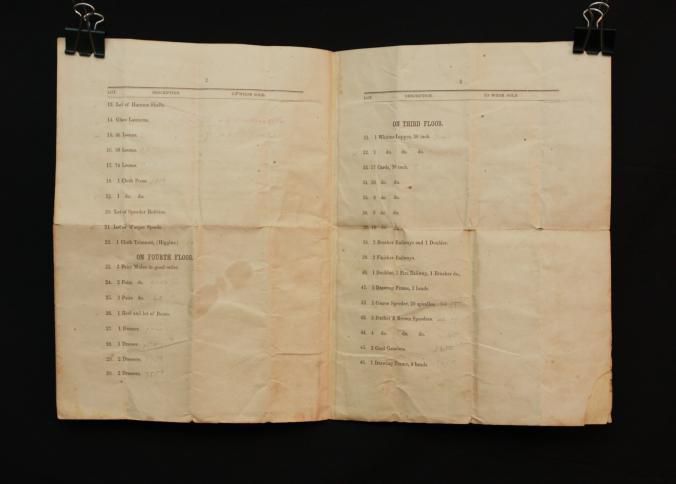 2
LOT. DESCRIPTION. TO WHOM SOLD.
13. Lot of Harness Shafts.
14. Glass Lanterns.
15. 46 Looms.
16. 38 Looms.
17. 74 Looms.
18. 1 Cloth Press.
19. 1 do. do.
20. Lot of Speeder Bobbins.
21. Lot of Warper Spools.
22. 1 Cloth Trimmer, (Higgins.)
ON FOURTH FLOOR.
23. 2 Pairs Mules in good order.
24. 2 Pairs do.
25. 3 Pairs do.
26. 1 Reel and lot of Beams.
27. 1 Dresser.
28. 1 Dresser.
29. 2 Dressers.
30. 2 Dressers.
3
LOT. DESCRIPTION. TO WHOM SOLD.
ON THIRD FLOOR.
31. 1 Whitin Lapper, 30 inch.
32. 2 do. do. do.
33. 17 Cards, 30 inch.
34. do. do.
35. 8 do. do.
36. 9 do. do.
37. do. do.
38. 2 Breaker Railways and 1 Doubler.
39. 2 Finisher Railways.
40. 1 Doubler, 1 Fin. Railway, 1 Breaker do.
41. Drawing Frame, 3 heads.
42. 2 Coarse Speeder, 20 spindles.
43. & Brown Speeders.
44. 4 do. do. do.
45. 2 Card Grinders.
46. 1 Drawing Frame, heads